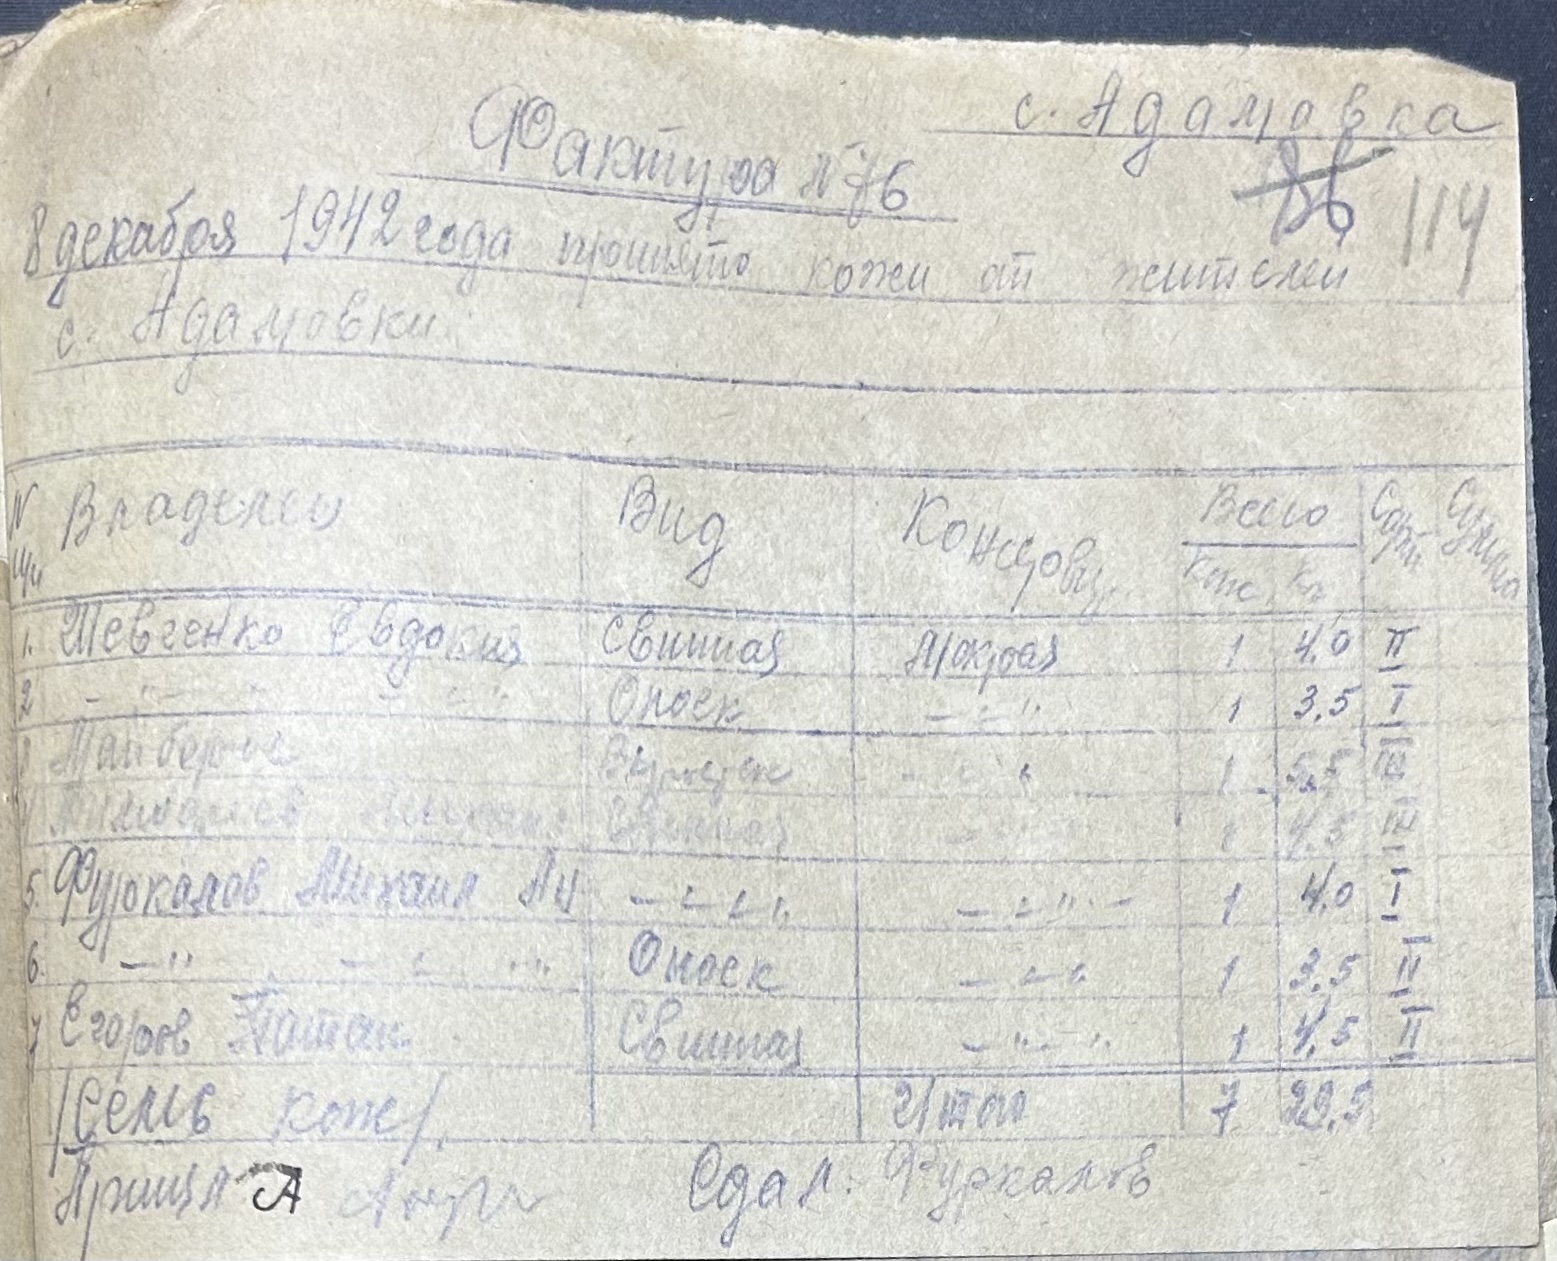 с. Адамовка
Фактура № 76
86 114
8 декабря 1942 года принято кожи от жителей
с. Адамовки
N Владелец Вид Консдовц. Всего Сорт Сумма
кож кг
1. Шевченко Евдокия Свинная Мокрая 1 4,0 II
2 —"— " — " " Опоек — " " 1 3.5 I
3 Майборода — " " 1 5,5 III
4 Свинная — " 1 4,5 III
5. Фуркалов Михаил Ан — " " " — " — 1 4.0 I
6. —"— — " " Опоек — " " 1 3.5 II
7 Егоров Свинная — " — " 1 4,5 II
/семь кож/ Итого 7 29,5
Принял А Сдал: Фуркалов